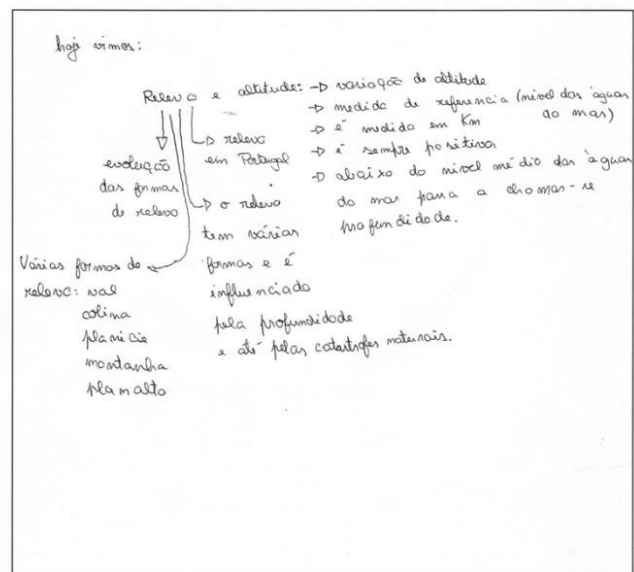 hoje vimos:
Relevo e altitude: → variação de altitude
→ medida de referencia (nível das àguas do mar)
→ é medido em Km
→ é sempre positiva
→ abaixo do nivel médio das àguas
do mar passa a chomar-se
profundidade.
→ relevo
em Portugal
evolução
das formas
de relevo
→ o relevo
tem várias
formas e é
influenciado
pela profundidade
e até pelas catástrofes naturais.
Várias formas de
relevo: val
colina
planicie
montanha
planalto